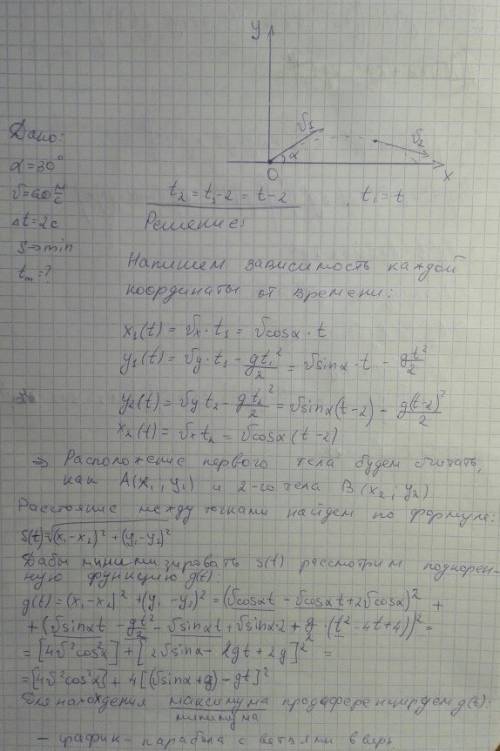 y
v₁
v₂
α
O
x
Дано:
α=30°
t₂ = t₁-2 = t-2     t₁ = t
Δt=2c
Решение:
S→min
tₘ=?
Напишем зависимость каждой
координаты от времени:
x₁(t) = vₓ·t₁ = vcosα·t
y₁(t) = vy·t₁ - gt₁²/2 = vsinα·t - gt²/2
y₂(t) = vy t₂ - gt₂²/2 = vsinα(t-2) - g(t-2)²/2
x₂(t) = vₓt₂ = vcosα(t-2)
⇒ Расположение первого тела будем считать,
как A(x₁; y₁) и 2-го тела B(x₂; y₂)
Расстояние между точками найдем по формуле:
S(t)=√(x₁-x₂)² + (y₁-y₂)²
Дабы минимизировать S(t) рассмотрим подкорен-
ную функцию g(t):
g(t) = (x₁-x₂)² + (y₁-y₂)² = (vcosαt - vcosαt+2vcosα)² +
+ (vsinαt - gt²/2 - vsinαt + vsinα·2 + g/2 (t²-4t+4))² =
= [4v²cos²α] + [2vsinα - 2gt + 2g]² =
= [4v²cos²α] + 4[(vsinα+g) - gt]²
Для нахождения максимума продифференцируем g(t):
минимума
- график - парабола с ветвями вверх